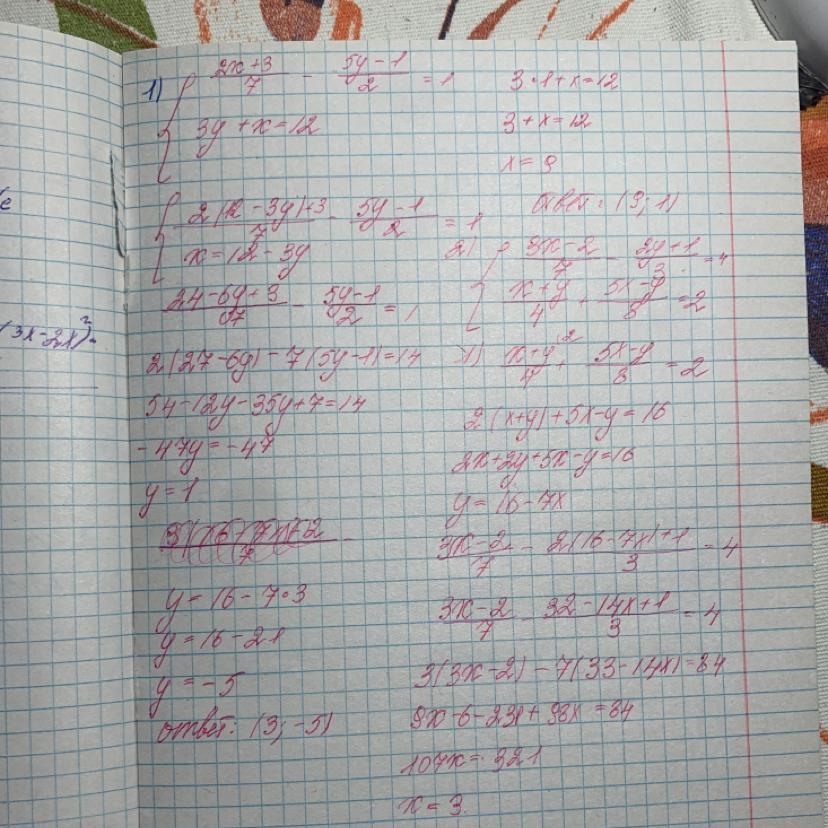 1) { (2x+3)/7 - (5y-1)/2 = 1
3y + x = 12
{ (2(12-3y)+3)/7 - (5y-1)/2 = 1
x = 12 - 3y
(24-6y+3)/7 - (5y-1)/2 = 1
2(27-6y) - 7(5y-1) = 14
54-12y-35y+7=14
-47y = -47
y = 1
3·1+x=12
3+x=12
x = 9
Ответ: (9; 1)
2) { (3x-2)/7 - (2y+1)/3 = 4
(x+y)/4 + (5x-y)/8 = 2
1) (x+y)/4 ^2 + (5x-y)/8 = 2
2(x+y)+5x-y=16
2x+2y+5x-y=16
y = 16-7x
(3x-2)/7 - (2(16-7x)+1)/3 = 4
(3x-2)/7 - (32-14x+1)/3 = 4
3(3x-2) - 7(33-14x)=84
9x-6-231+98x=84
107x = 321
x = 3.
y = 16 - 7·3
y = 16 - 21
y = -5
Ответ: (3; -5)
(3x-2x)²-